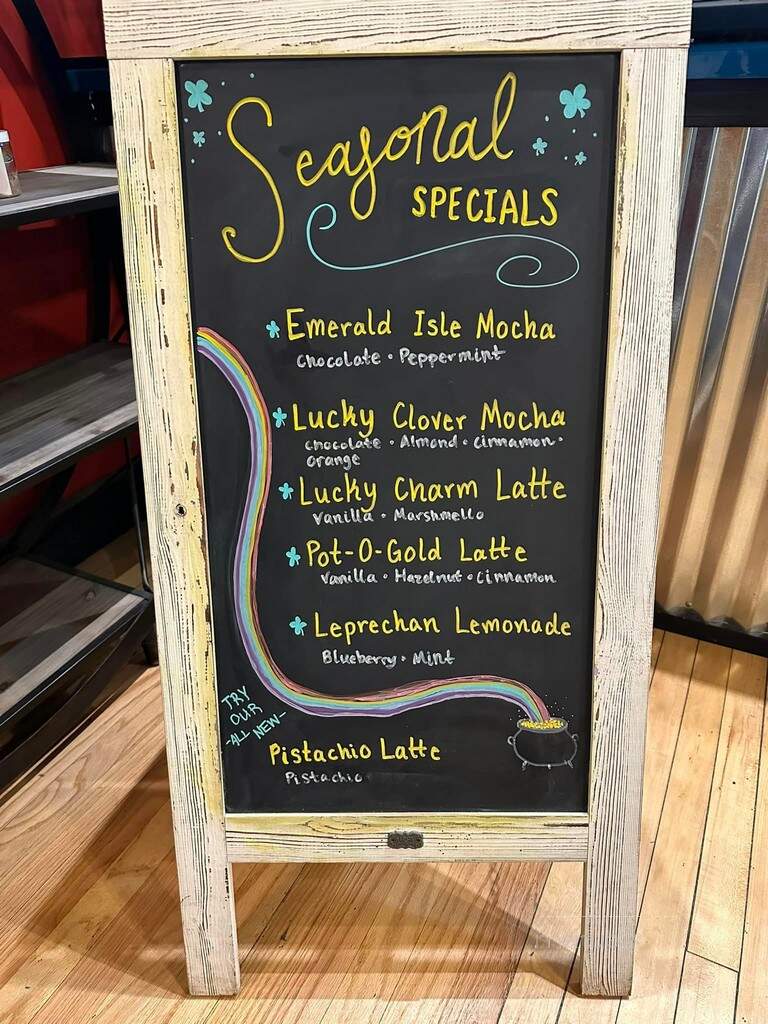 Seasonal
SPECIALS
Emerald Isle Mocha
Chocolate • Peppermint
Lucky Clover Mocha
Chocolate • Almond • Cinnamon •
Orange
Lucky Charm Latte
Vanilla • Marshmello
Pot-O-Gold Latte
Vanilla • Hazelnut • Cinnamon
Leprechan Lemonade
Blueberry • Mint
TRY
OUR
-ALL NEW-
Pistachio Latte
Pistachio